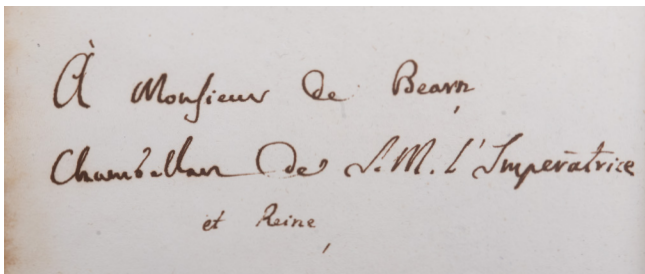 À Monsieur de Bearn,
Chambellan de S. M. l'Imperatrice
et Reine,